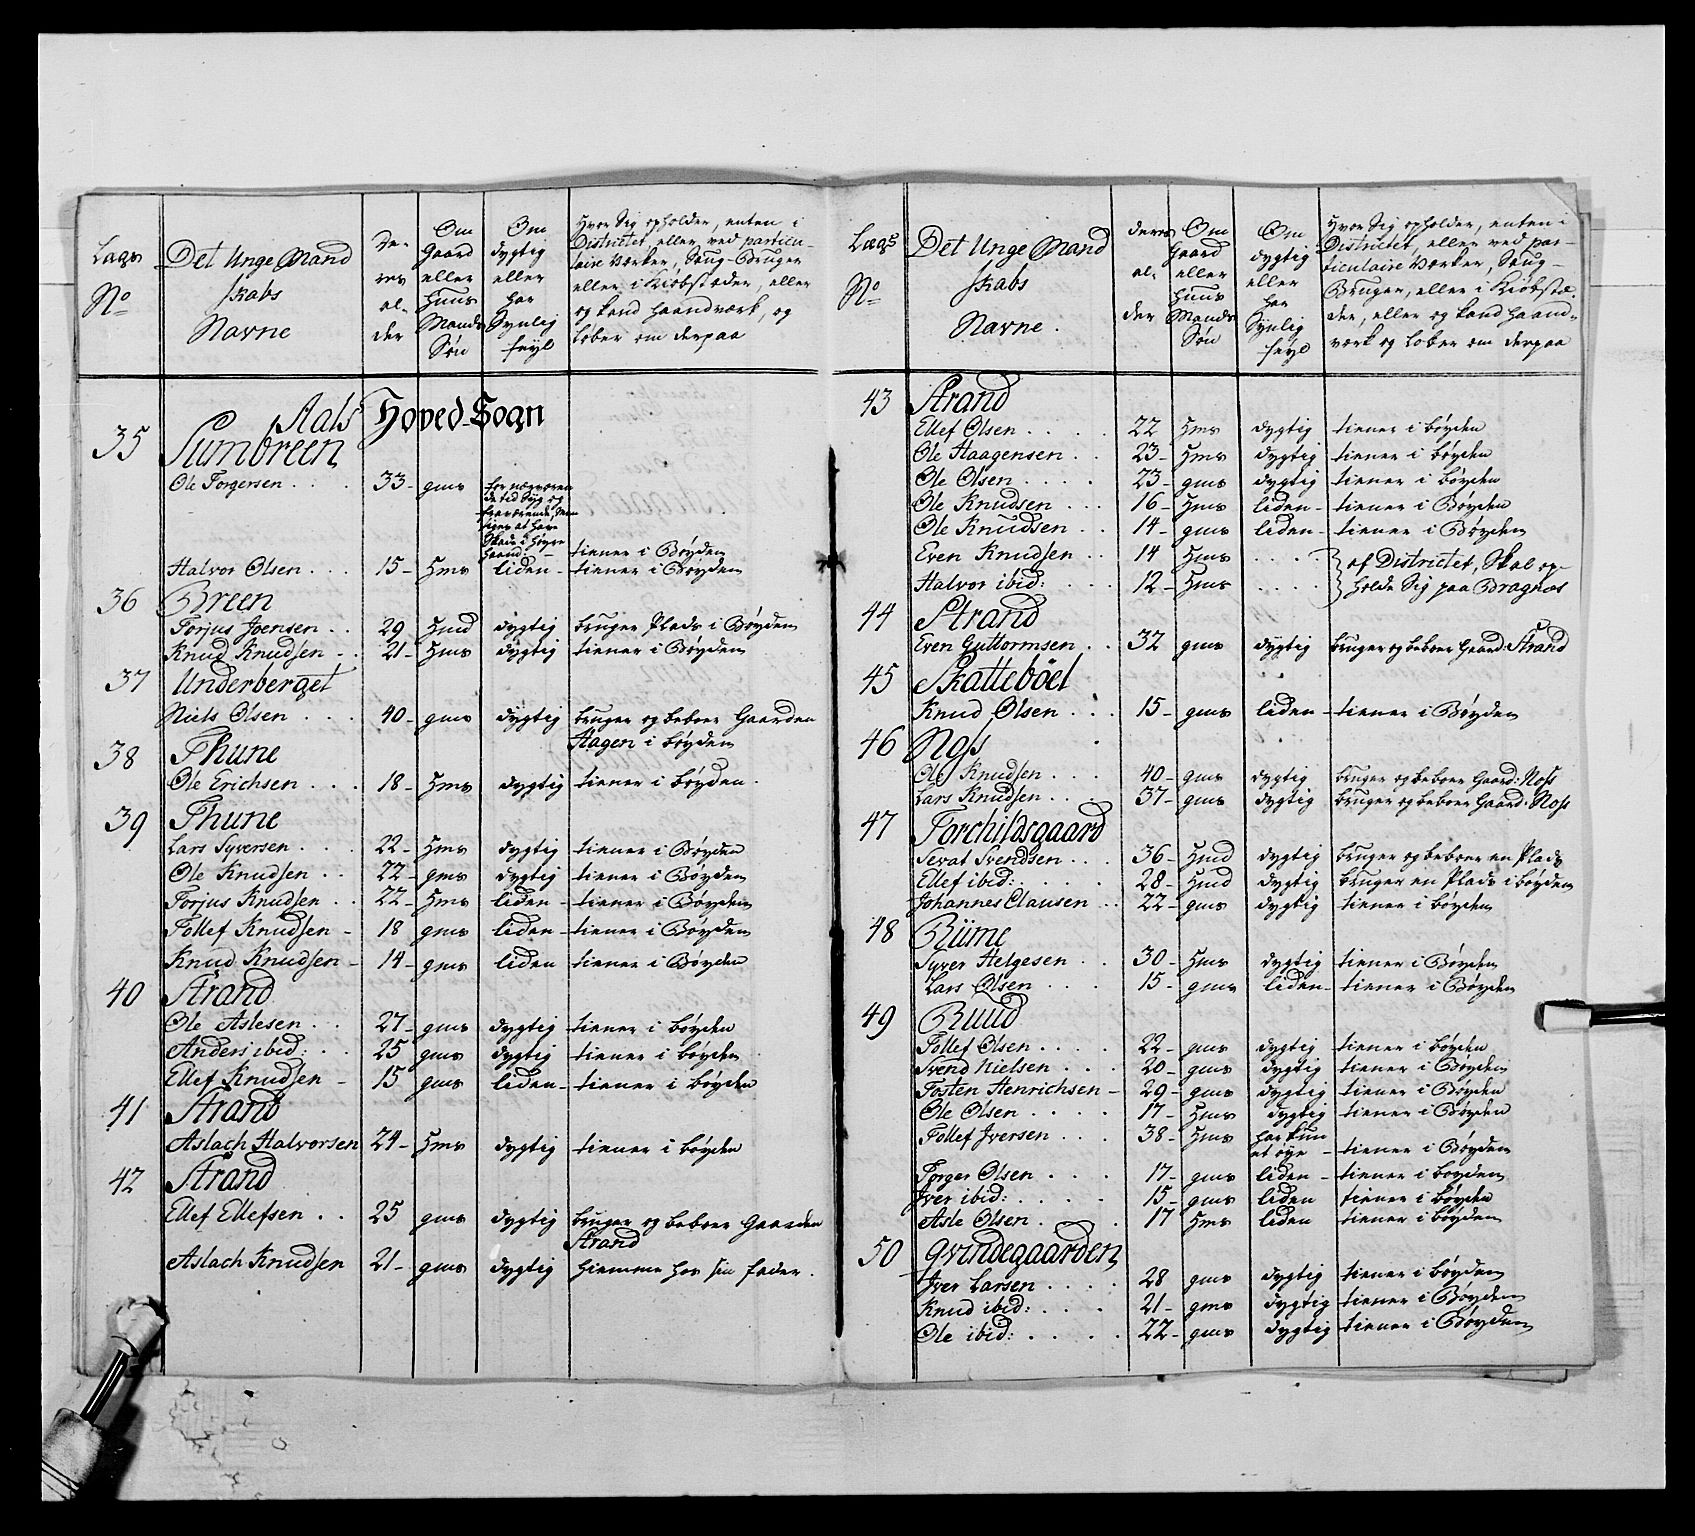 Lægs No | Det Unge Mandskabs Navne | Deres alder | Om Gaard eller Huus Mands Søn | Om dygtig eller har Synlig feyl | Hvor Sig opholder, enten i Districtet, eller ved particulaire Værker, Saug-Bruger eller i Kiøbstæder, eller og kand haandværk, og løber om derpaa
Aals Hoved-Sogn
35 Sumbreen
Ole Torgersen . . . 33- gms for nærværende tid Syg og fraværende, siges at have Skade i høyre haand - tiener i Bøyden
Halvor Olsen . . . 15- Hms liden- tiener i Bøyden
36 Breen
Torjus Joensen . . 29 Hmd dygtig bruger Plads i Bøyden
Knud Knudsen - . 21- Hms dygtig tiener i Bøyden
37 Underberget
Niels Olsen . . . 40- gms dygtig bruger og beboer Gaarden
Hagen i bøyden
38 Thune
Ole Erichsen . . . 18- Hms dygtig tiener i bøyden.
39 Thune
Lars Syversen . . . 22- Hms dygtig tiener i Bøyden
Ole Knudsen . . 22- gms dygtig tiener i Bøyden
Torjus Knudsen . . 22- Hms liden- tiener i Bøyden
Tollef Knudsen - 18 gms liden- tiener i Bøyden
Knud Knudsen - 14- gms liden tiener i Bøyden
40 Strand
Ole Aslesen . . 27- gms dygtig tiener i bøyden
Anders ibid: . . 25 gms dygtig tiener i bøyden
Ellef Knudsen - 15 gms liden- tiener i bøyden
41 Strand
Aslach Halvorsen 24- Hms dygtig tiener i bøyden
42 Strand
Ellef Ellefsen . . 25 gms dygtig bruger og beboer Gaarden
Strand
Aslach Knudsen 21- gms dygtig hiemme hos sin fader.
Lægs No | Det Unge Mandskabs Navne. | deres alder | Om Gaard eller Huus Mands Søn | Om dygtig eller har Synlig feyl | Hvor Sig opholder, enten i Districtet, eller ved particulaire Værker, Saug-Bruger, eller i Kiøbstæder, eller og kand haandværk og løber om derpaa
43 Strand
Ellef Olsen . . . . 22 Hms dygtig tiener i bøyden
Ole Haagensen . . 23- Hms dygtig tiener i bøyden
Ole Olsen . . . . 23- gms dygtig tiener i bøyden
Ole Knudsen . . . 16- Hms liden- tiener i Bøyden
Ole Knudsen . . 14- gms liden- tiener i Bøyden
Even Knudsen . . 14 Hms . . . . af Districtet, Skal op-
Halvor ibid: . . . 12- Hms . . . . holde Sig paa Bragnæs
44 Strand
Even Guttormsen . . 32 gms dygtig bruger og beboer Gaard: Strand
45 Skattebøel
Knud Olsen . . . 15- gms liden- tiener i Bøyden
46 Noss
Ole Knudsen . . . 40- gms dygtig bruger og beboer Gaard: Noss
Lars Knudsen . . . 37- gms dygtig bruger og beboer Gaard: Noss
47 Torchildsgaard
Sevat Svendsen . . . 36- Hmd dygtig bruger og beboer en Plads
Ellef ibid: . . . . 28- Hmd dygtig bruger en Plads i bøyden
Johannes Clausen . . 22- gms dygtig tiener i bøyden
48 Riime
Syver Helgesen . . 30- Hms dygtig tiener i Bøyden
Lars Olsen . . . 15- gms liden- tiener i Bøyden
49 Ruud
Tollef Olsen . . . . 22- gms dygtig tiener i bøyden
Svend Nielsen . . . 20- gms dygtig tiener i Bøyden
Tosten Henrichsen - 29- gms dygtig tiener i Bøyden
Ole Olsen . . . . 17- Hms dygtig tiener i Bøyden
Tollef Iversen . . . 38- Hms har kun et øye - tiener i Bøyden
Torger Olsen . . . 17- gms liden- tiener i bøyden
Iver ibid: . . . . 15- gms liden tiener i bøyden
Asle Olsen . . . . 17 Hms liden tiener i bøyden
50 Qvindegaarden
Iver Larsen . . . . 28 gms dygtig tiener i bøyden
Knud ibid: . . . . 21- gms dygtig tiener i Bøyden
Ole ibid: . . . . . 22- gms dygtig tiener i Bøyden